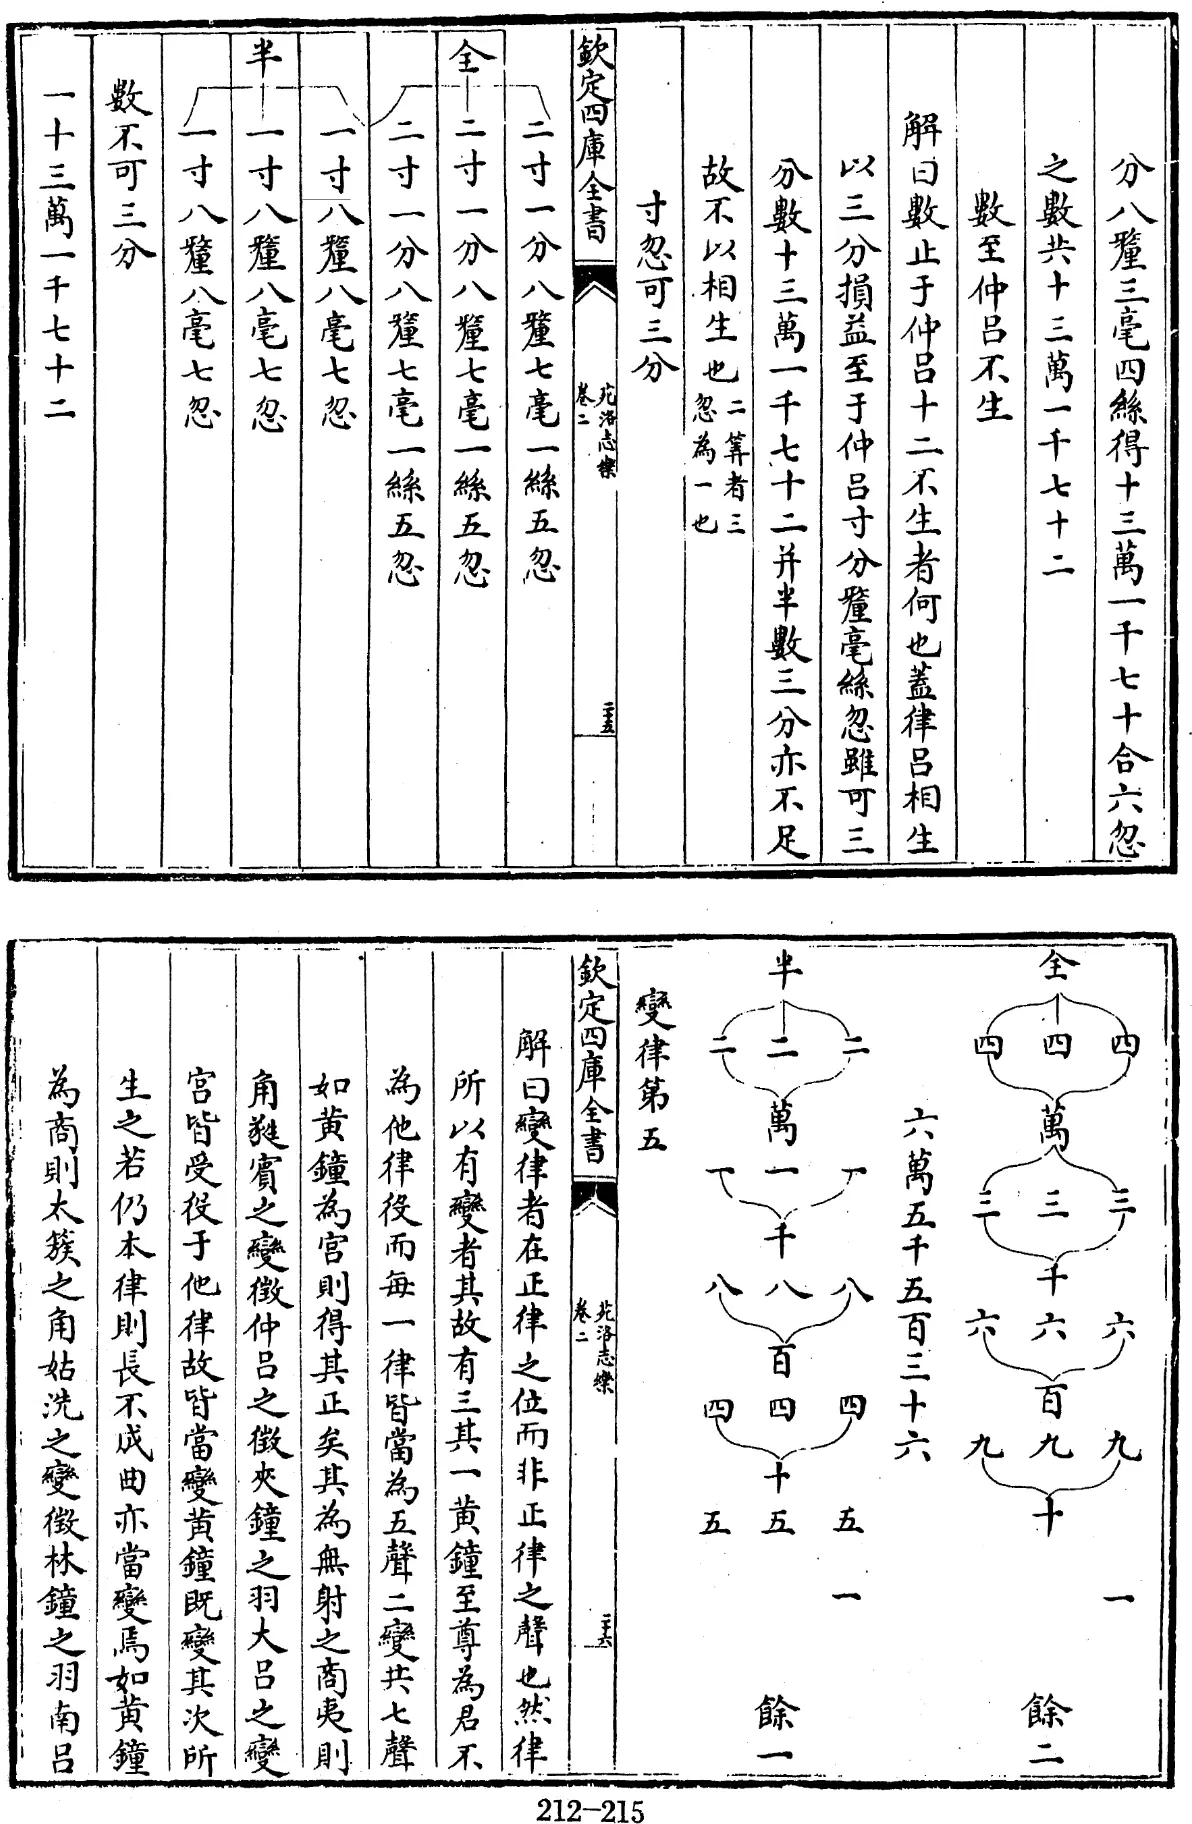 分八釐三毫四絲得十三萬一千七十合六忽
之數共十三萬一千七十二
數至仲呂不生
解曰數止于仲呂十二不生者何也蓋律呂相生
以三分損益至于仲呂寸分釐毫絲忽雖可三
分數十三萬一千七十二并半數三分亦不足
故不以相生也二筭者三
忽為一也
寸忽可三分
欽定四庫全書
苑洛志樂
卷二
二十五
全
二寸一分八釐七毫一絲五忽
二寸一分八釐七毫一絲五忽
二寸一分八釐七毫一絲五忽
半
一寸八釐八毫七忽
一寸八釐八毫七忽
一寸八釐八毫七忽
數不可三分
一十三萬一千七十二
全
四 四 四
萬
三 三 三
千
六 六 六
百
九 九 九
十
一
餘二
六萬五千五百三十六
半
二 二 二
萬
一 一 一
千
八 八 八
百
四 四 四
十
五 五 五
一
餘一
變律第五
欽定四庫全書
苑洛志樂
卷二
二十六
解曰變律者在正律之位而非正律之聲也然律
所以有變者其故有三其一黃鐘至尊為君不
為他律役而每一律皆當為五聲二變共七聲
如黃鐘為宮則得其正矣其為無射之商夷則
角蕤賓之變徵仲呂之徵夾鐘之羽大呂之變
宮皆受役于他律故皆當變黃鐘既變其次所
生之若仍本律則長不成曲亦當變焉如黃鐘
為商則太簇之角姑洗之變徵林鐘之羽南呂
212-215